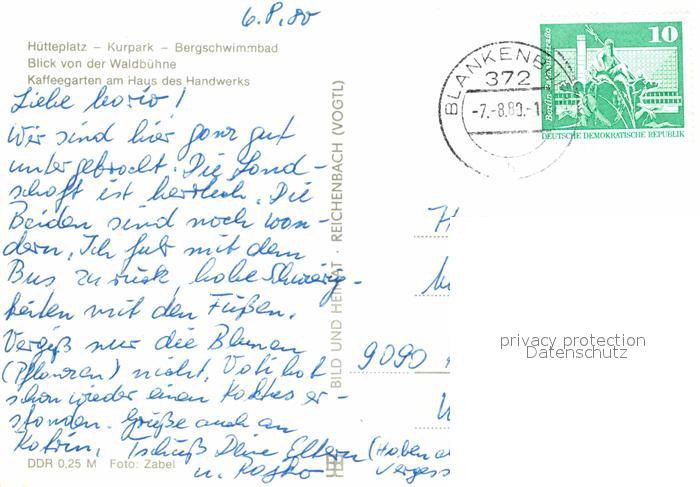 6.8.80
Hütteplatz – Kurpark – Bergschwimmbad
Blick von der Waldbühne
Kaffeegarten am Haus des Handwerks
Liebe Mario!
Wir sind hier ganz gut
untergebracht. Die Land-
schaft ist herrlich. Die
Beiden sind noch wan-
dern. Ich fuhr mit dem
Bus zurück, habe Schwierig-
keiten mit den Füßen.
Vergeß nur die Blumen
(Pflanzen) nicht. Vati hat
schon wieder einen Kaktus er-
standen. Grüße auch an
Katrin. Tschüß Deine Eltern
u. Rayko
(Haben
vergess
DDR 0,25 M Foto: Zabel
BILD UND HEIMAT · REICHENBACH (VOGTL)
BLANKENB
372
-7.-8.80.-1
10
DEUTSCHE DEMOKRATISCHE REPUBLIK
9090
privacy protection
Datenschutz